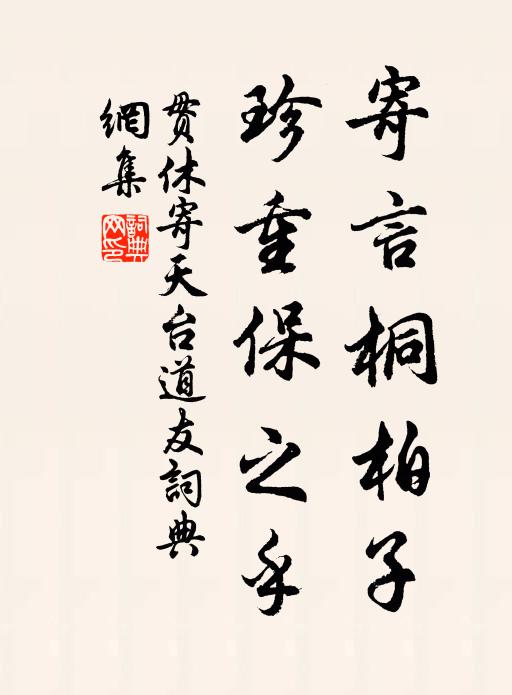 寄言桐柏子
珍重保之乎
貫休寄天台道友詞典
網集
詞典
网印